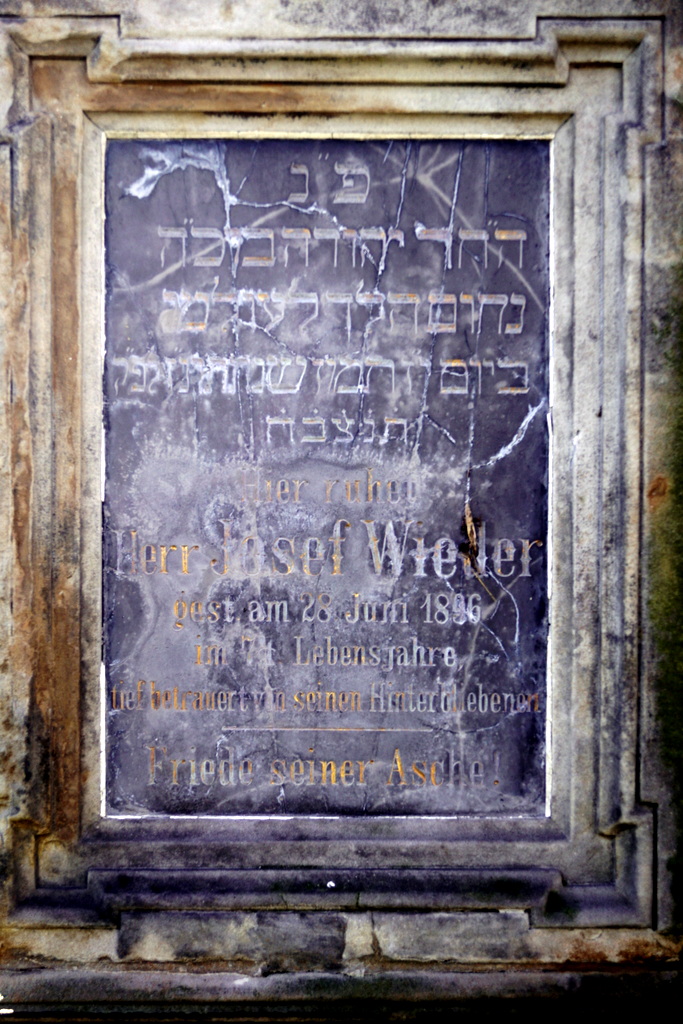 פ״נ
נחום הלך לעולמו
ביום
תנצבה
Hier ruhen
Herr Josef Wieder
gest. am 28 Juni 1896
im 71 Lebensjahre,
tief betrauert von seinen Hinterbliebenen
Friede seiner Asche!